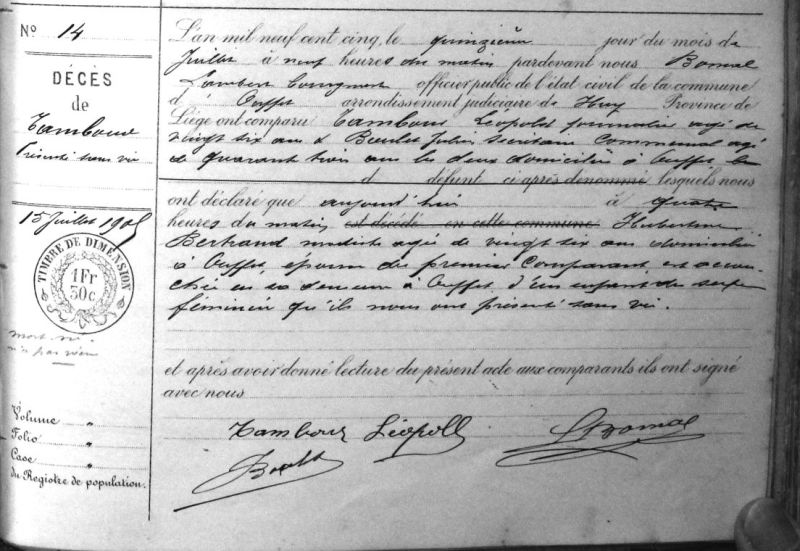 N° 14
DÉCÈS
de
Tambour
Présenté sans vie
15 Juillet 1905
TIMBRE DE DIMENSION
1 Fr
30c
mort-né
n'a pas vécu
Volume "
Folio "
Case "
du Registre de population.
L'an mil neuf cent cinq, le quinzième jour du mois de
Juillet à neuf heures du matin pardevant nous Bomal
Lambert officier public de l'état civil de la commune
d' Ouffet arrondissement judiciaire de Huy Province de
Liège ont comparu Tambour Léopold journalier agé de
vingt six ans & Boulet Julien secrétaire communal agé
de quarante trois ans les deux domiciliés à Ouffet le
d défunt ci après dénommé lesquels nous
ont déclaré que aujourd'hui à quatre
heures du matin est décédé en cette commune Hubertine
Bertrand modiste agée de vingt six ans domiciliée
à Ouffet, épouse du premier comparant, est accou-
chée en sa demeure à Ouffet d'un enfant du sexe
féminin qu'ils nous ont présenté sans vie.
et après avoir donné lecture du présent acte aux comparants ils ont signé
avec nous
Tambour Léopold
LBomal
Boulet